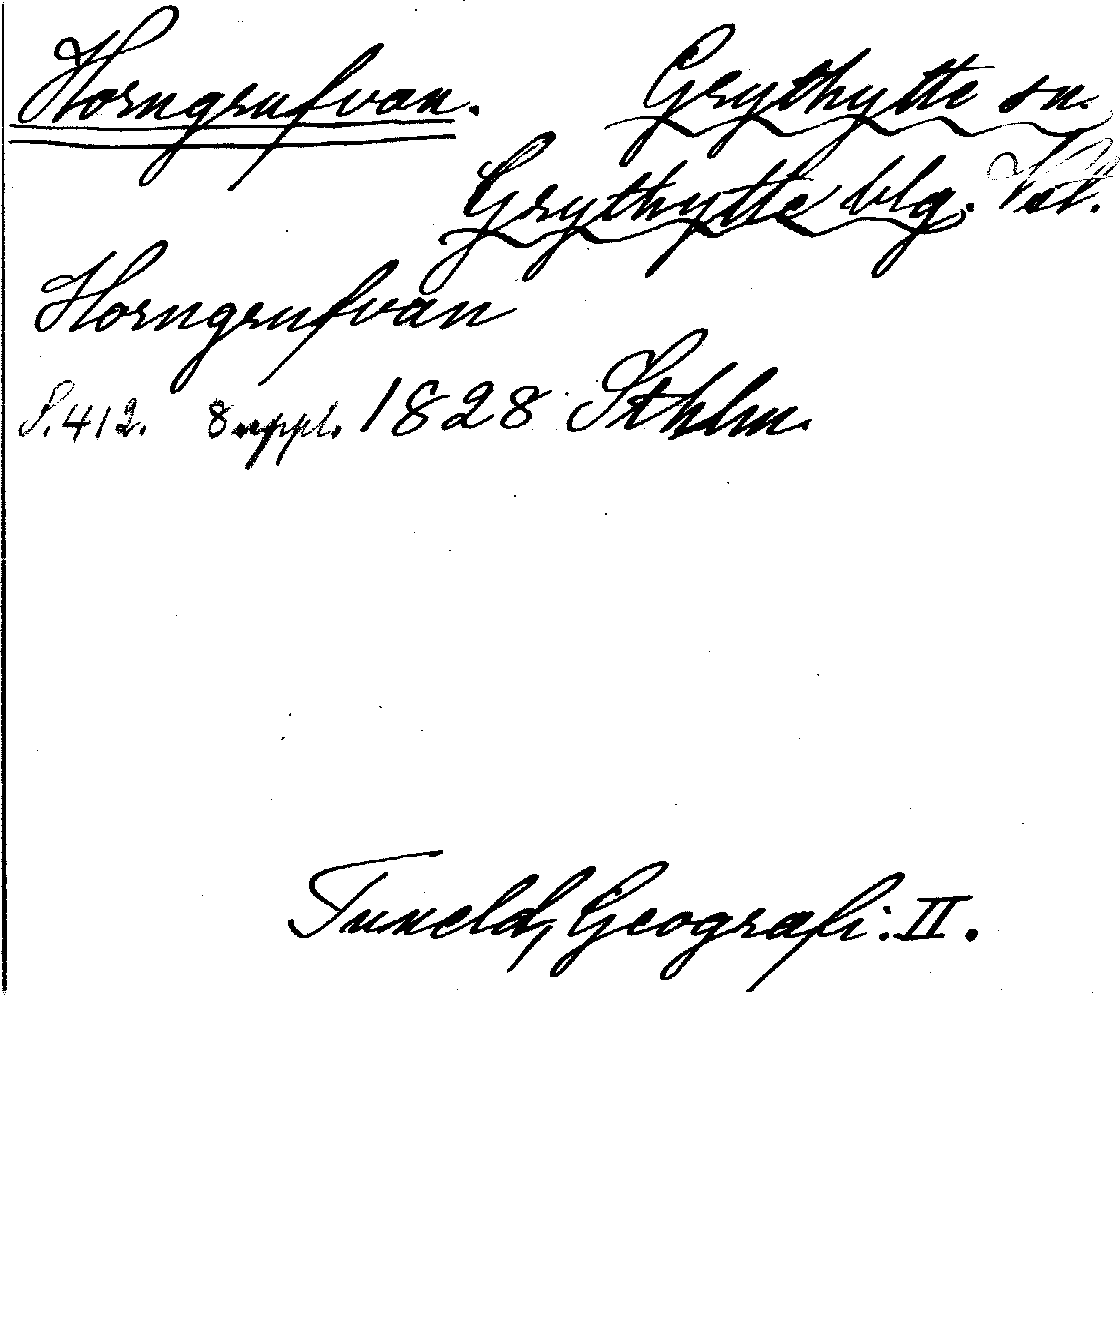 Horngrufvan. Grythytte sn.
Grythytte blg. Vstl.
Horngrufvan
S. 412. 8 uppl. 1828 Sthlm.
Tuneld, Geografi: II.